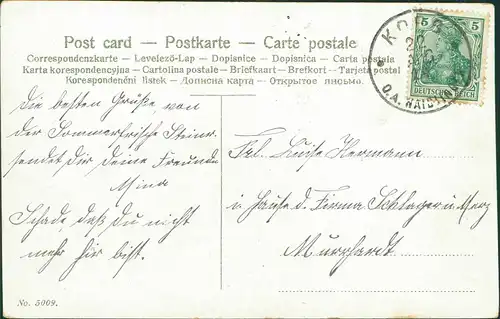 Post card — Postkarte — Carte postale
Correspondenzkarte — Levelező-Lap — Dopisnice — Dopisnica — Carta postala
Karta korespondencyjna — Cartolina postale — Briefkaart — Brefkort — Tarjeta postal
Korespondenční lístek — Дописна карта — Открытое письмо.
5 5
DEUTSCHES REICH
O.A. WAIBL
Die besten Grüße von
der Sommerfrische
sendet dir deine Freundin
Mina
Schade, daß du nicht
mehr hier bist.
Frl. Luise Hermann
i Hause d. Firma Schlager u. Merz
Murrhardt
No. 5009.